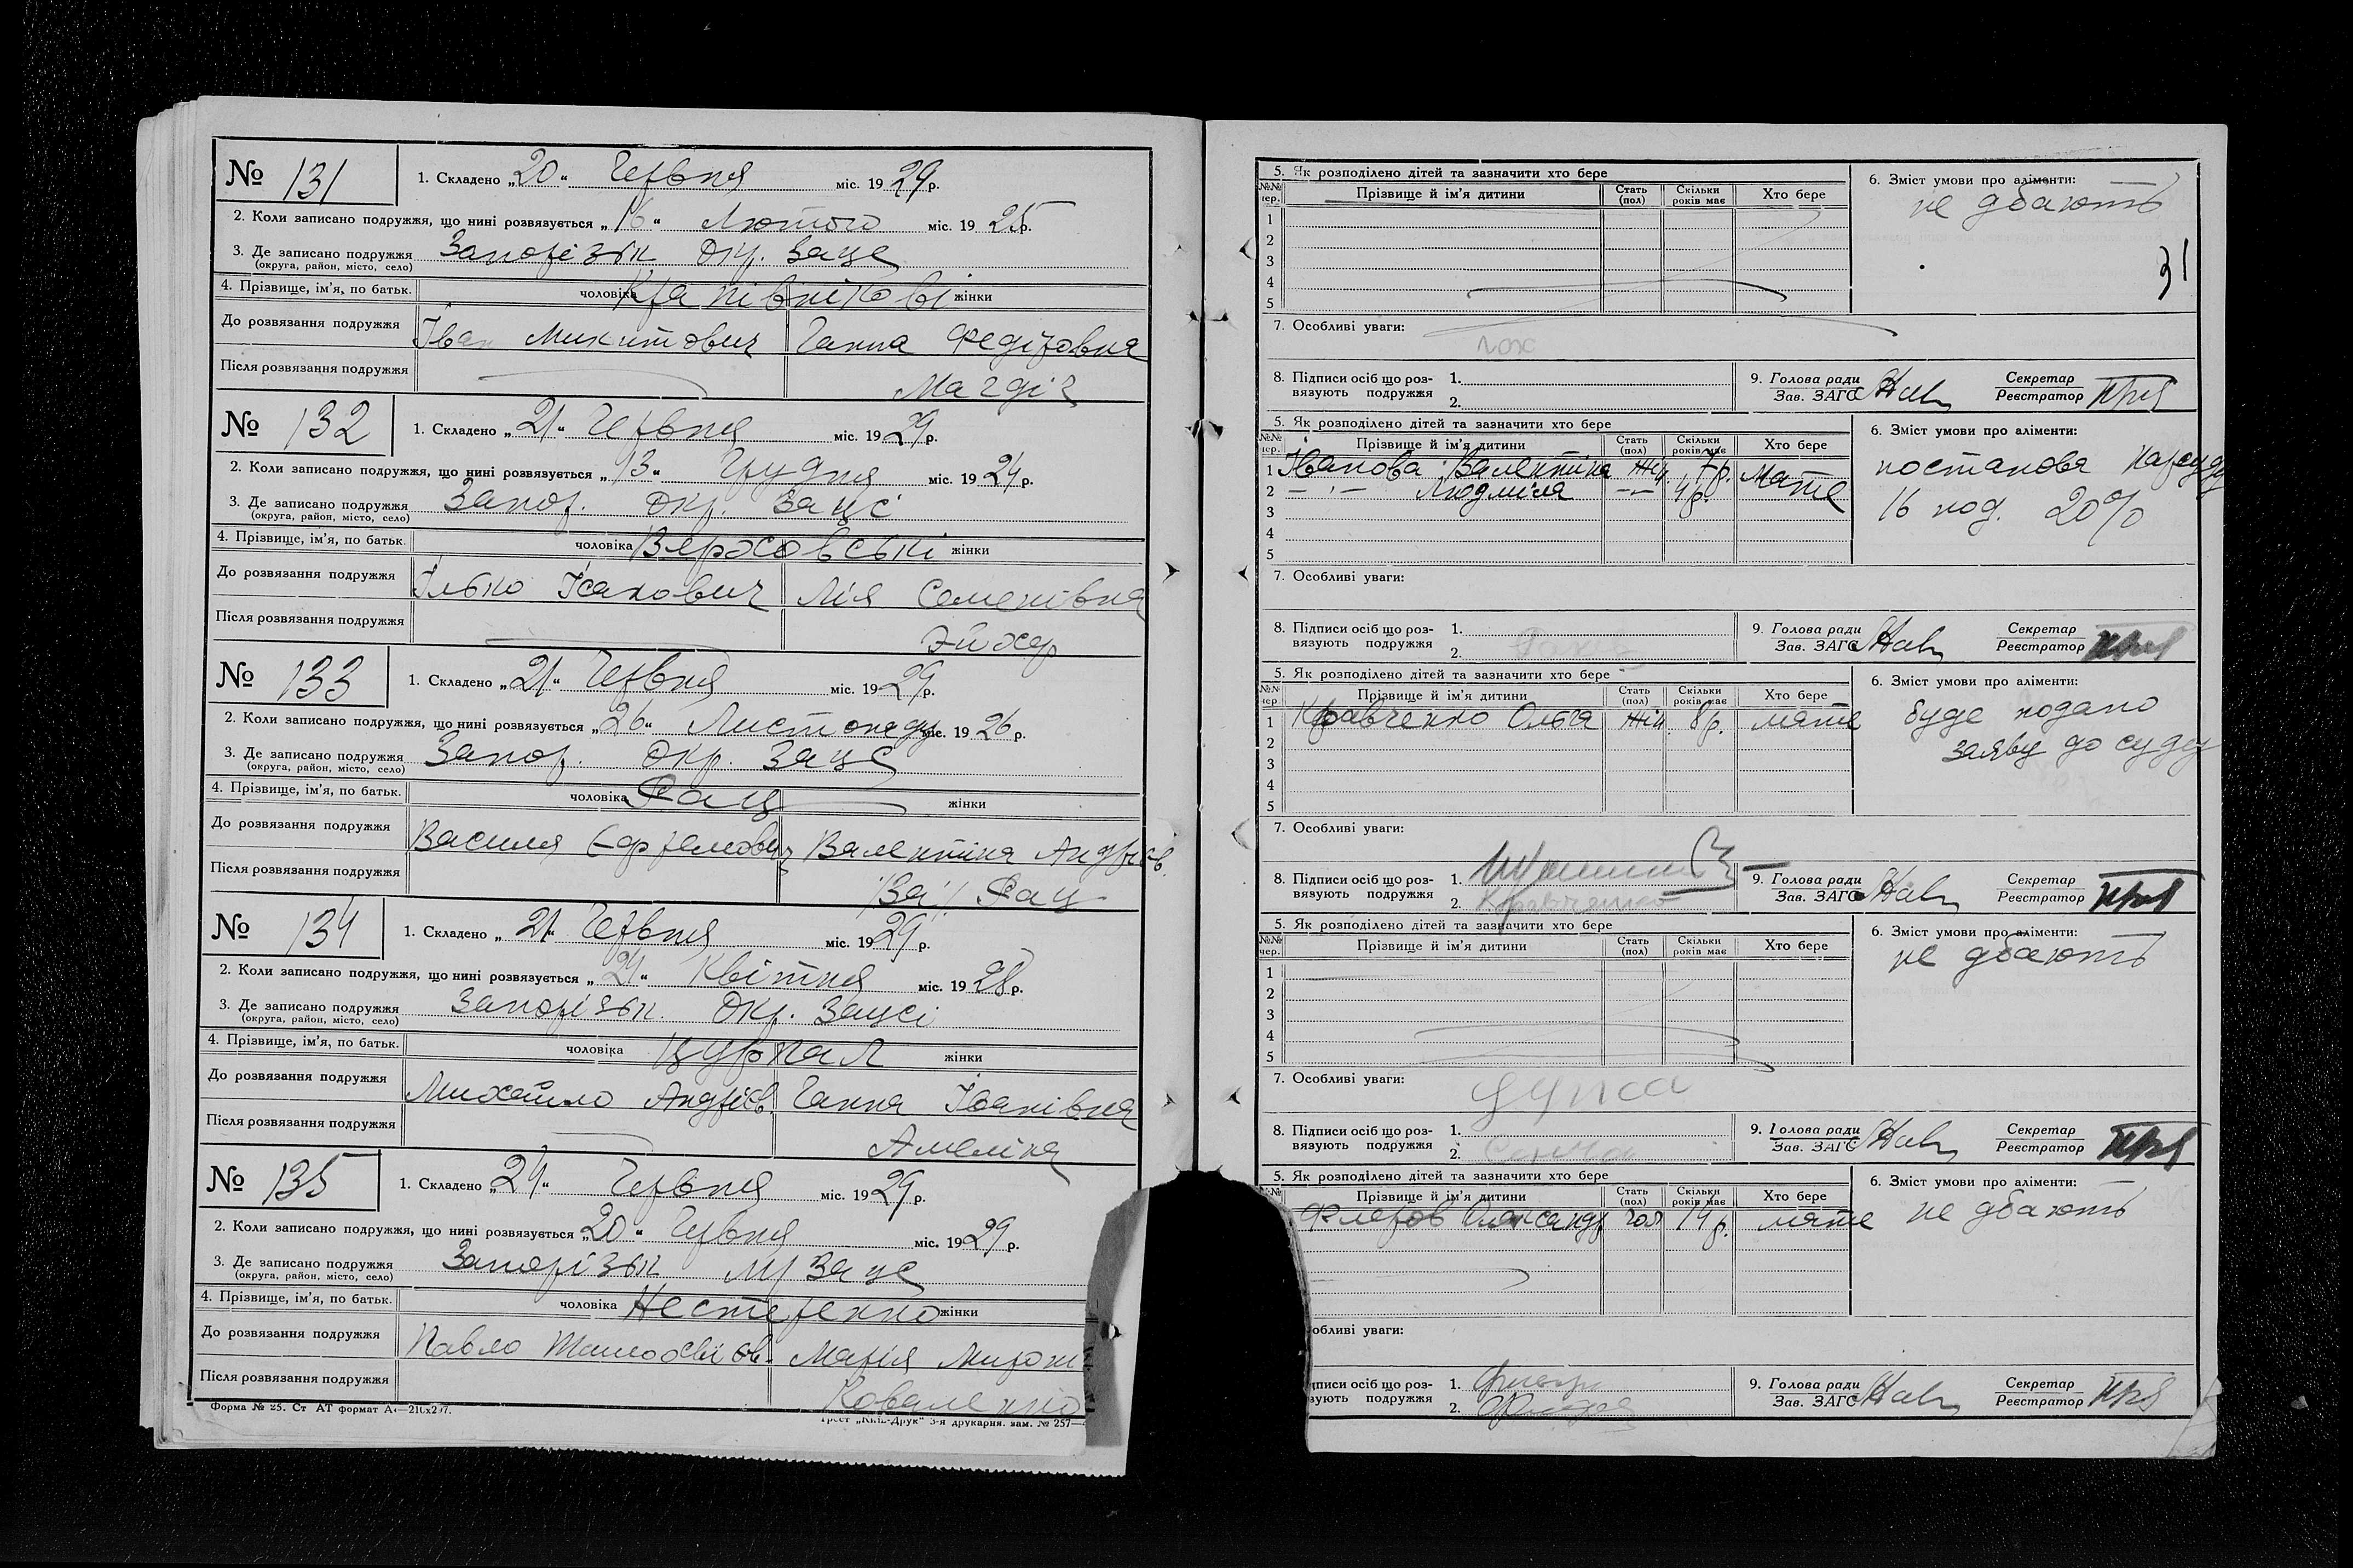 № 131
1. Складено „20“ Червня міс. 1929 р.
2. Коли записано подружжя, що нині розвязується „16“ Лютого міс. 1925 р.
3. Де записано подружжя Запорізьк Окр. Загс
(округа, район, місто, село)
4. Прізвище, ім'я, по батьк. чоловіка Крапівнікові жінки
До розвязання подружжя Іван Микитович Ганна Федіровна
Після розвязання подружжя Магдіч
№ 132
1. Складено „21“ Червня міс. 1929 р.
2. Коли записано подружжя, що нині розвязується „13“ Грудня міс. 1924 р.
3. Де записано подружжя Запор. Окр. Загсі
(округа, район, місто, село)
4. Прізвище, ім'я, по батьк. чоловіка жінки
До розвязання подружжя Ілько Ісакович Лія Семенівна
Після розвязання подружжя
№ 133
1. Складено „21“ Червня міс. 1929 р.
2. Коли записано подружжя, що нині розвязується „26“ Листопаду міс. 1926 р.
3. Де записано подружжя Запор. Окр. Загс
(округа, район, місто, село)
4. Прізвище, ім'я, по батьк. чоловіка жінки
До розвязання подружжя Василя Єфремович Валентіна Андрієв.
Після розвязання подружжя
№ 134
1. Складено „21“ Червня міс. 1929 р.
2. Коли записано подружжя, що нині розвязується „24“ Квітня міс. 1928 р.
3. Де записано подружжя Запорізьк. Окр. Загсі
(округа, район, місто, село)
4. Прізвище, ім'я, по батьк. чоловіка Цуркал жінки
До розвязання подружжя Михайло Андрієв Ганна Іванівна
Після розвязання подружжя Амеліна
№ 135
1. Складено „24“ Червня міс. 1929 р.
2. Коли записано подружжя, що нині розвязується „20“ Червня міс. 1929 р.
3. Де записано подружжя Запорізьк Загс
(округа, район, місто, село)
4. Прізвище, ім'я, по батьк. чоловіка Нестеренко жінки
До розвязання подружжя Павло Марія
Після розвязання подружжя Коваленко
Форма № 25. Ст АТ формат
Трест „Київ-Друк“ 3-я друкарня. зам. № 257—
5. Як розподілено дітей та зазначити хто бере
№№ чер. Прізвище й ім'я дитини Стать (пол) Скільки років має Хто бере
1
2
3
4
5
6. Зміст умови про аліменти:
не дбають
31
7. Особливі уваги:
8. Підписи осіб що розвязують подружжя 1. 2.
9. Голова ради Зав. ЗАГС Секретар Реєстратор
5. Як розподілено дітей та зазначити хто бере
№№ чер. Прізвище й ім'я дитини Стать (пол) Скільки років має Хто бере
1 Іванова Валентіна Жін. 7р. Мате
2 —"— Людміла —"— 4р.
3
4
5
6. Зміст умови про аліменти:
постанова Нарсуду
16 под. 20%
7. Особливі уваги:
8. Підписи осіб що розвязують подружжя 1. 2.
9. Голова ради Зав. ЗАГС Секретар Реєстратор
5. Як розподілено дітей та зазначити хто бере
№№ чер. Прізвище й ім'я дитини Стать (пол) Скільки років має Хто бере
1 Кравченко Ольга Жін. 8р. мате
2
3
4
5
6. Зміст умови про аліменти:
буде подано
заяву до суду
7. Особливі уваги:
8. Підписи осіб що розвязують подружжя 1. 2. Кравченко
9. Голова ради Зав. ЗАГС Секретар Реєстратор
5. Як розподілено дітей та зазначити хто бере
№№ чер. Прізвище й ім'я дитини Стать (пол) Скільки років має Хто бере
1
2
3
4
5
6. Зміст умови про аліменти:
не дбають
7. Особливі уваги:
8. Підписи осіб що розвязують подружжя 1. 2.
9. Голова ради Зав. ЗАГС Секретар Реєстратор
5. Як розподілено дітей та зазначити хто бере
Прізвище й ім'я дитини Стать (пол) Скільки років має Хто бере
Флеров Олександр чол 14р. мате
6. Зміст умови про аліменти:
не дбають
обливі уваги:
писи осіб що розвязують подружжя 1. 2.
9. Голова ради Зав. ЗАГС Секретар Реєстратор